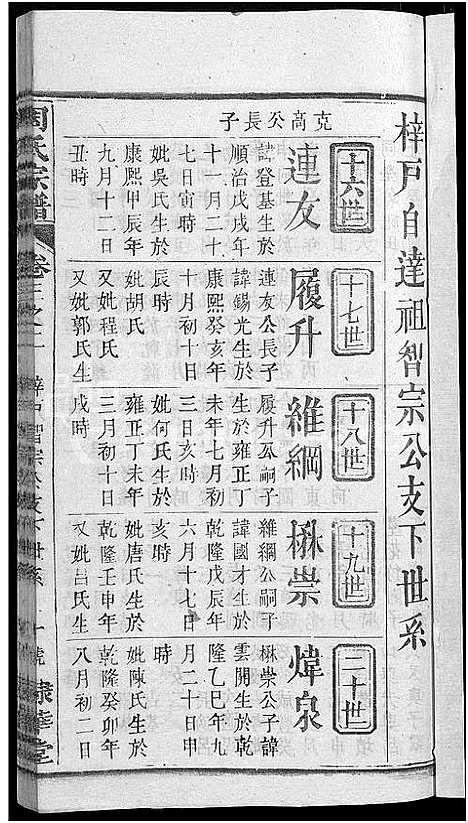 梓戸自達祖智宗公支下世系
十六世
克高公長子
連友
諱登基生於
順治戊戌年
十一月二十
七日寅時
妣吳氏生於
康熙甲辰年
九月十二日
丑時
十七世
履升
連友公長子
諱錫光生於
康熙癸亥年
十月初十日
辰時
妣胡氏
又妣程氏
又妣郭氏生
十八世
維綱
履升公嗣子
生於雍正丁
未年七月初
三日亥時
妣何氏生於
雍正丁未年
三月初十日
戌時
十九世
楙崇
維綱公嗣子
諱國才生於
乾隆戊辰年
六月十七日
亥時
妣唐氏生於
乾隆壬申年
又妣呂氏生
二十世
煒泉
楙崇公子諱
雲開生於乾
隆乙巳年九
月二十日申
時
妣陳氏生於
乾隆癸卯年
八月初二日
周氏宗譜
卷三之
梓戸智宗公支下世系
號
棣華堂